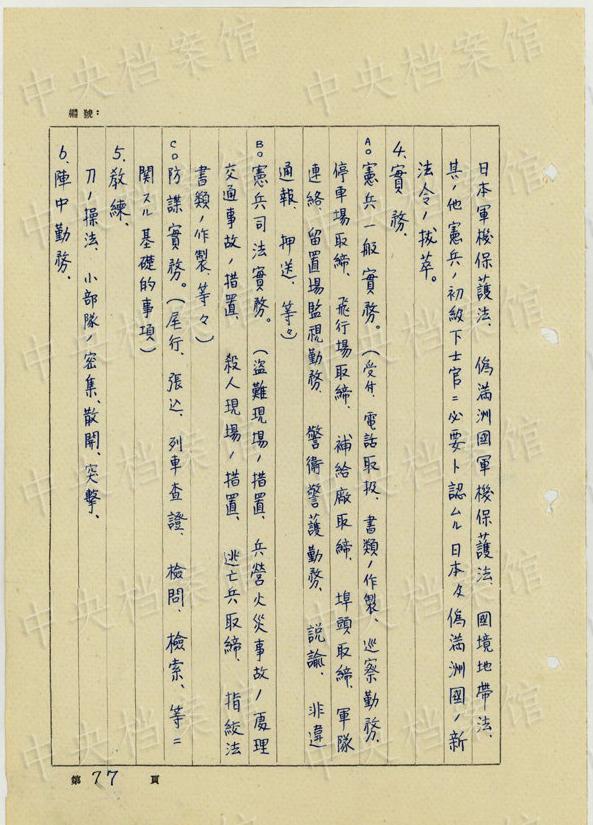 編號:
日本軍機保護法、偽満洲國軍機保護法、國境地帶法、
其ノ他憲兵ノ初級下士官ニ必要ト認ムル日本及偽満洲國ノ新
法令ノ拔萃。
4、實務、
A。憲兵一般實務。(受付、電話取扱、書類ノ作製、巡察勤務、
停車場取締、飛行場取締、補給廠取締、埠頭取締、軍隊
連絡、留置場監視勤務、警衛警護勤務、説諭、非違
通報、押送、等々)
B。憲兵司法實務。(盜難現場ノ措置、兵營火災事故ノ處理
交通事故ノ措置、殺人現場ノ措置、逃亡兵取締、指紋法
書類ノ作製、等々)
C。防諜實務。(尾行、張込、列車査證、檢問、檢索、等ニ
関スル基礎的事項)
5、敎練、
刀ノ操法、小部隊ノ密集、散開、突擊、
6、陣中勤務、
第77頁
中央档案馆
中央档案馆
中央档案馆
中央档案馆
中央档案馆
中央档案馆
中央档案馆
中央档案馆
中央档案馆
中央档案馆